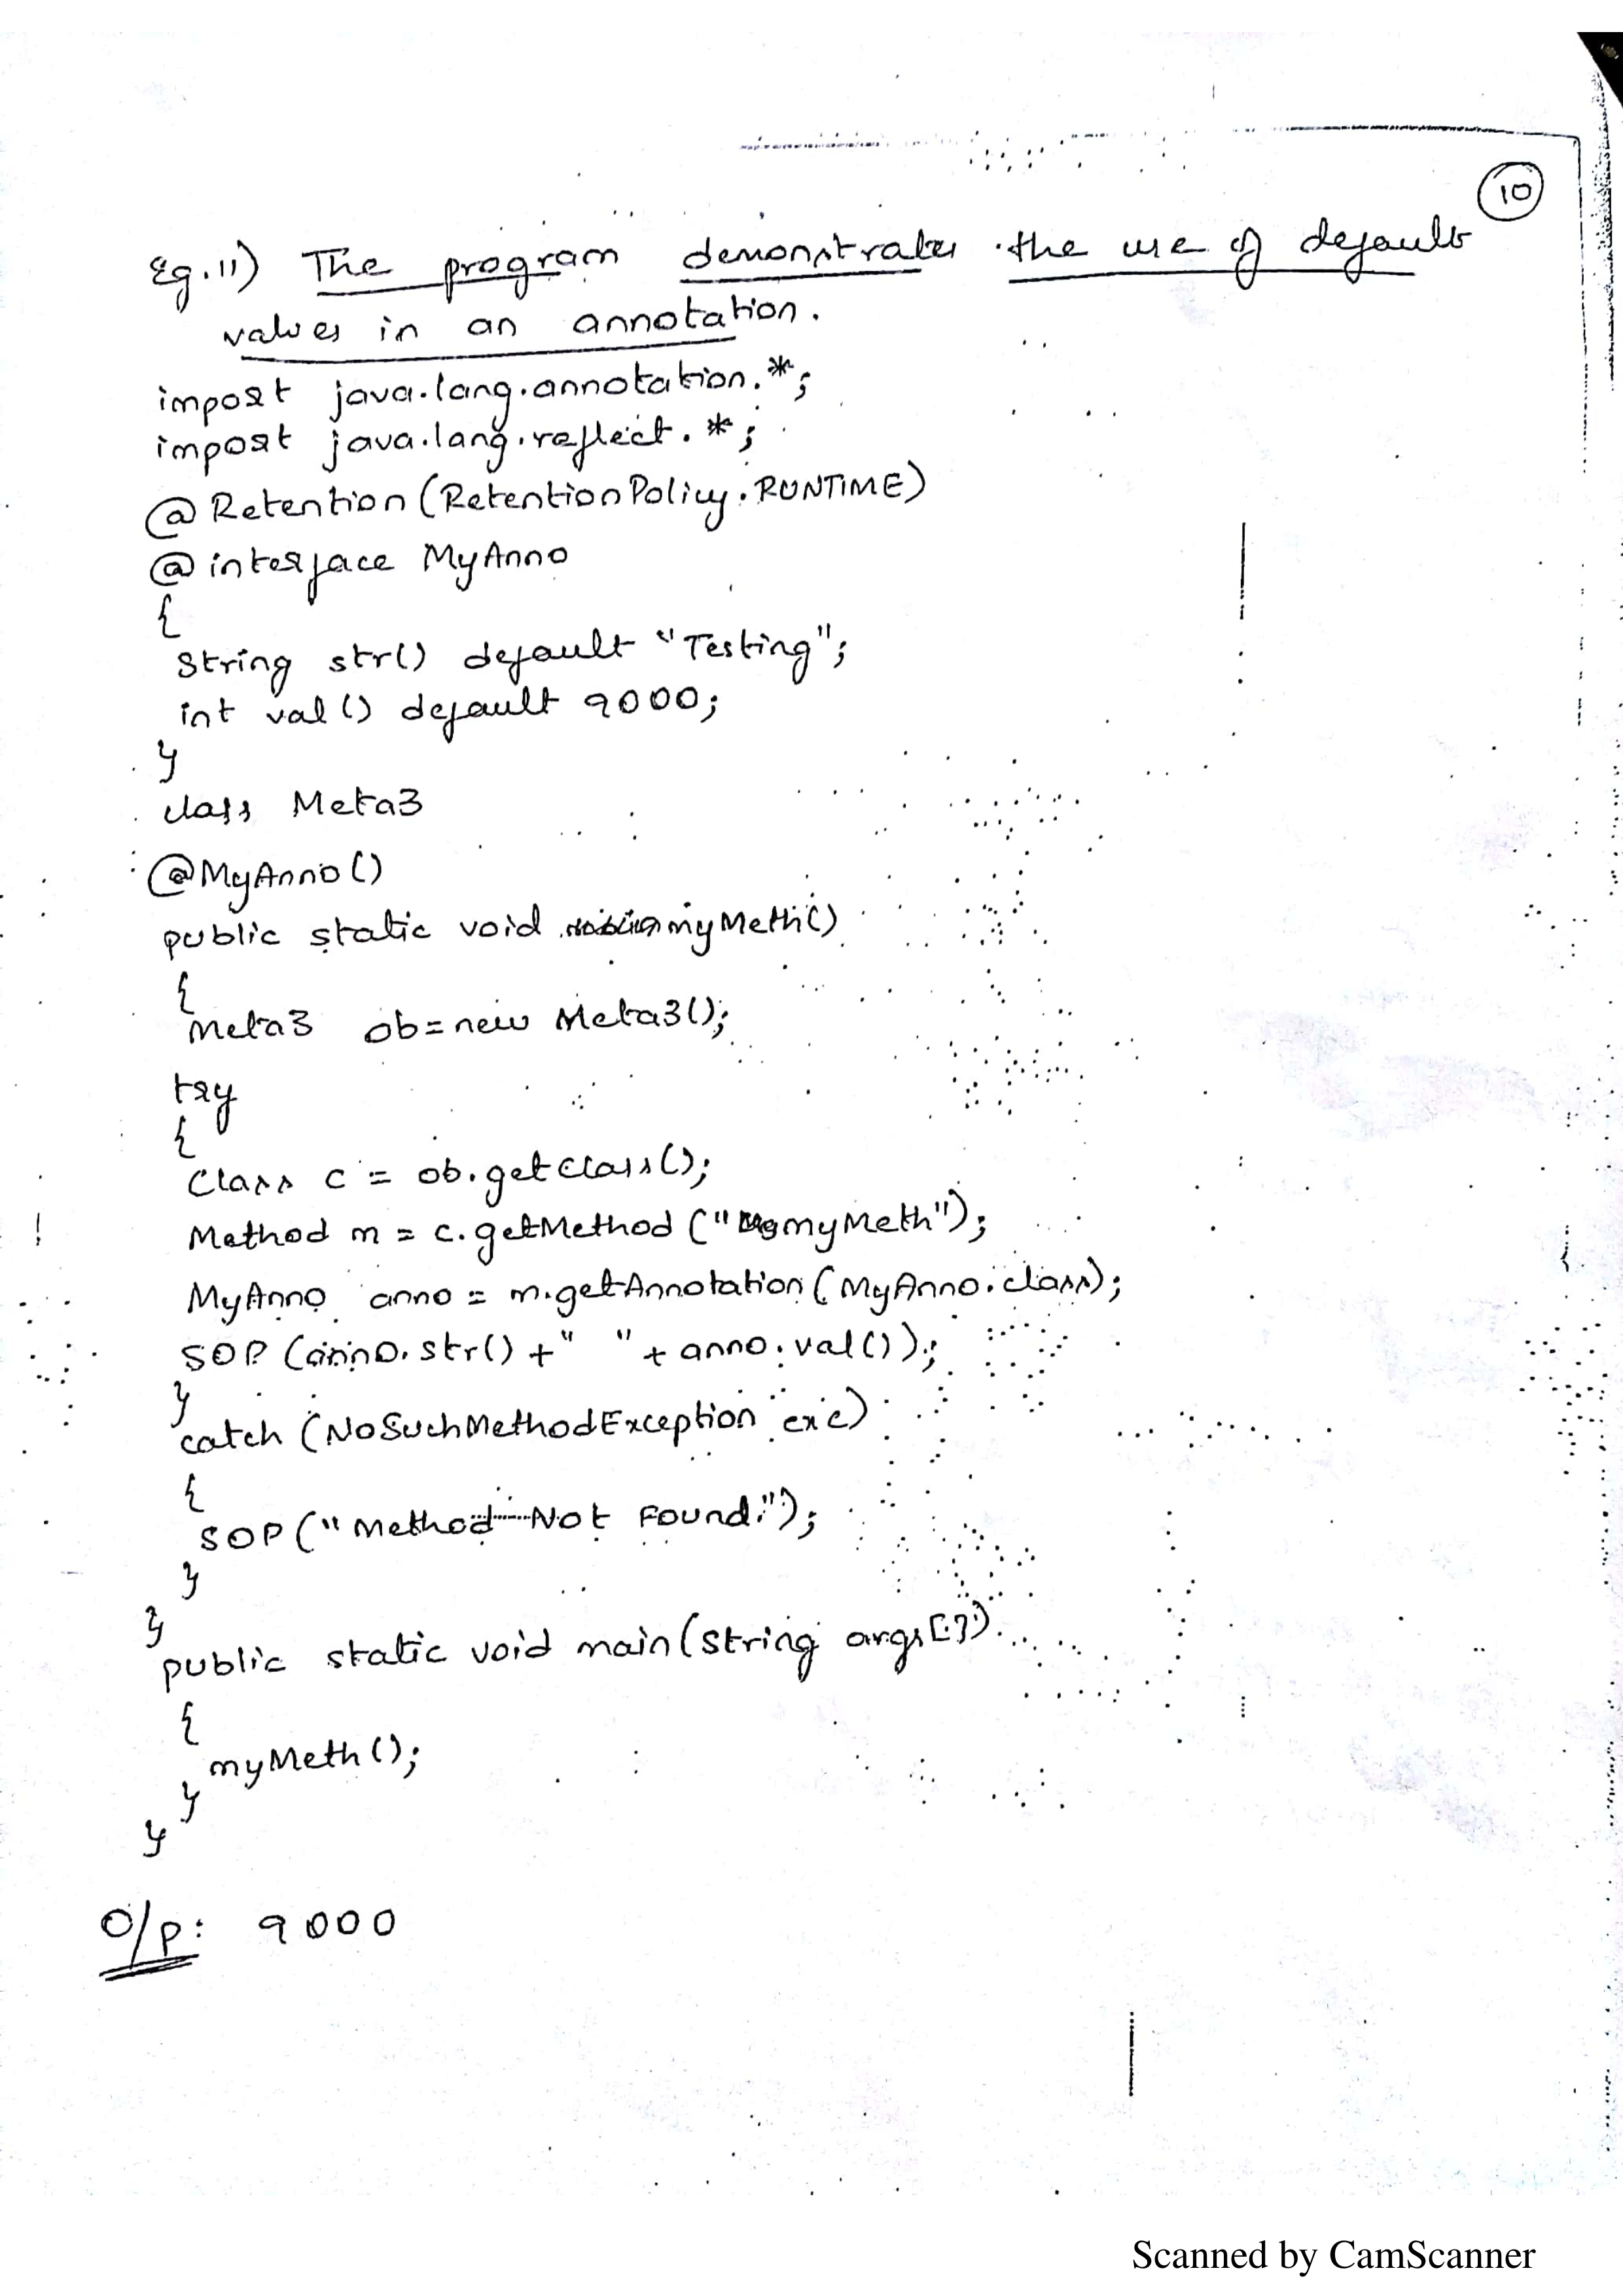 10
Eg.11) The program demonstrates the use of default
values in an annotation.
import java.lang.annotation.*;
import java.lang.reflect.*;
@Retention(RetentionPolicy.RUNTIME)
@interface MyAnno
{
String str() default "Testing";
int val() default 9000;
}
class Meta3
@MyAnno()
public static void myMeth()
{
Meta3 ob=new Meta3();
try
{
Class c = ob.getClass();
Method m = c.getMethod("myMeth");
MyAnno anno = m.getAnnotation(MyAnno.class);
SOP(anno.str()+" "+anno.val());
}
catch (NoSuchMethodException exc)
{
SOP("Method Not Found.");
}
}
public static void main(String args[])
{
myMeth();
}
}
O/p: 9000
Scanned by CamScanner